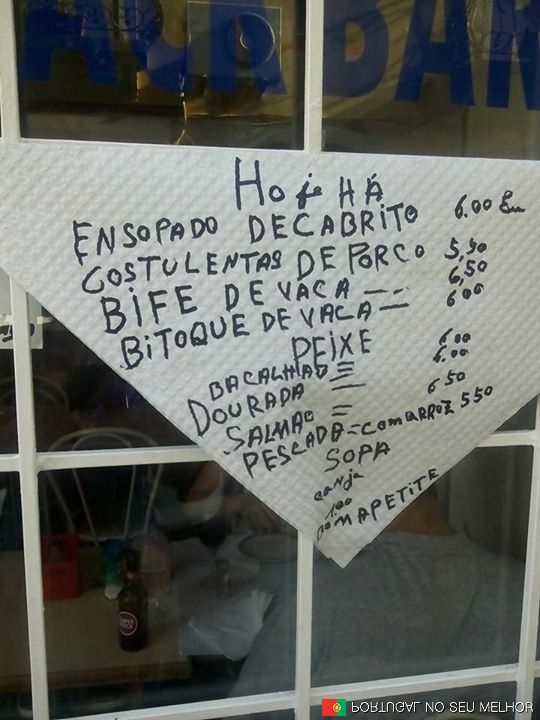 ACA BAR
Hoje HÁ
ENSOPADO DE CABRITO 6.00 Eu
COSTULENTAS DE PORCO 5,50
BIFE DE VACA — 6,50
BITOQUE DE VACA = 6.00
PEIXE
BACALHAO = 6.00
DOURADA = 6.00
SALMAO = 6 50
PESCADA = COM ARROZ 5 50
SOPA
canja
1.00
BOM APETITE
SUPER BOCK
PORTUGAL NO SEU MELHOR